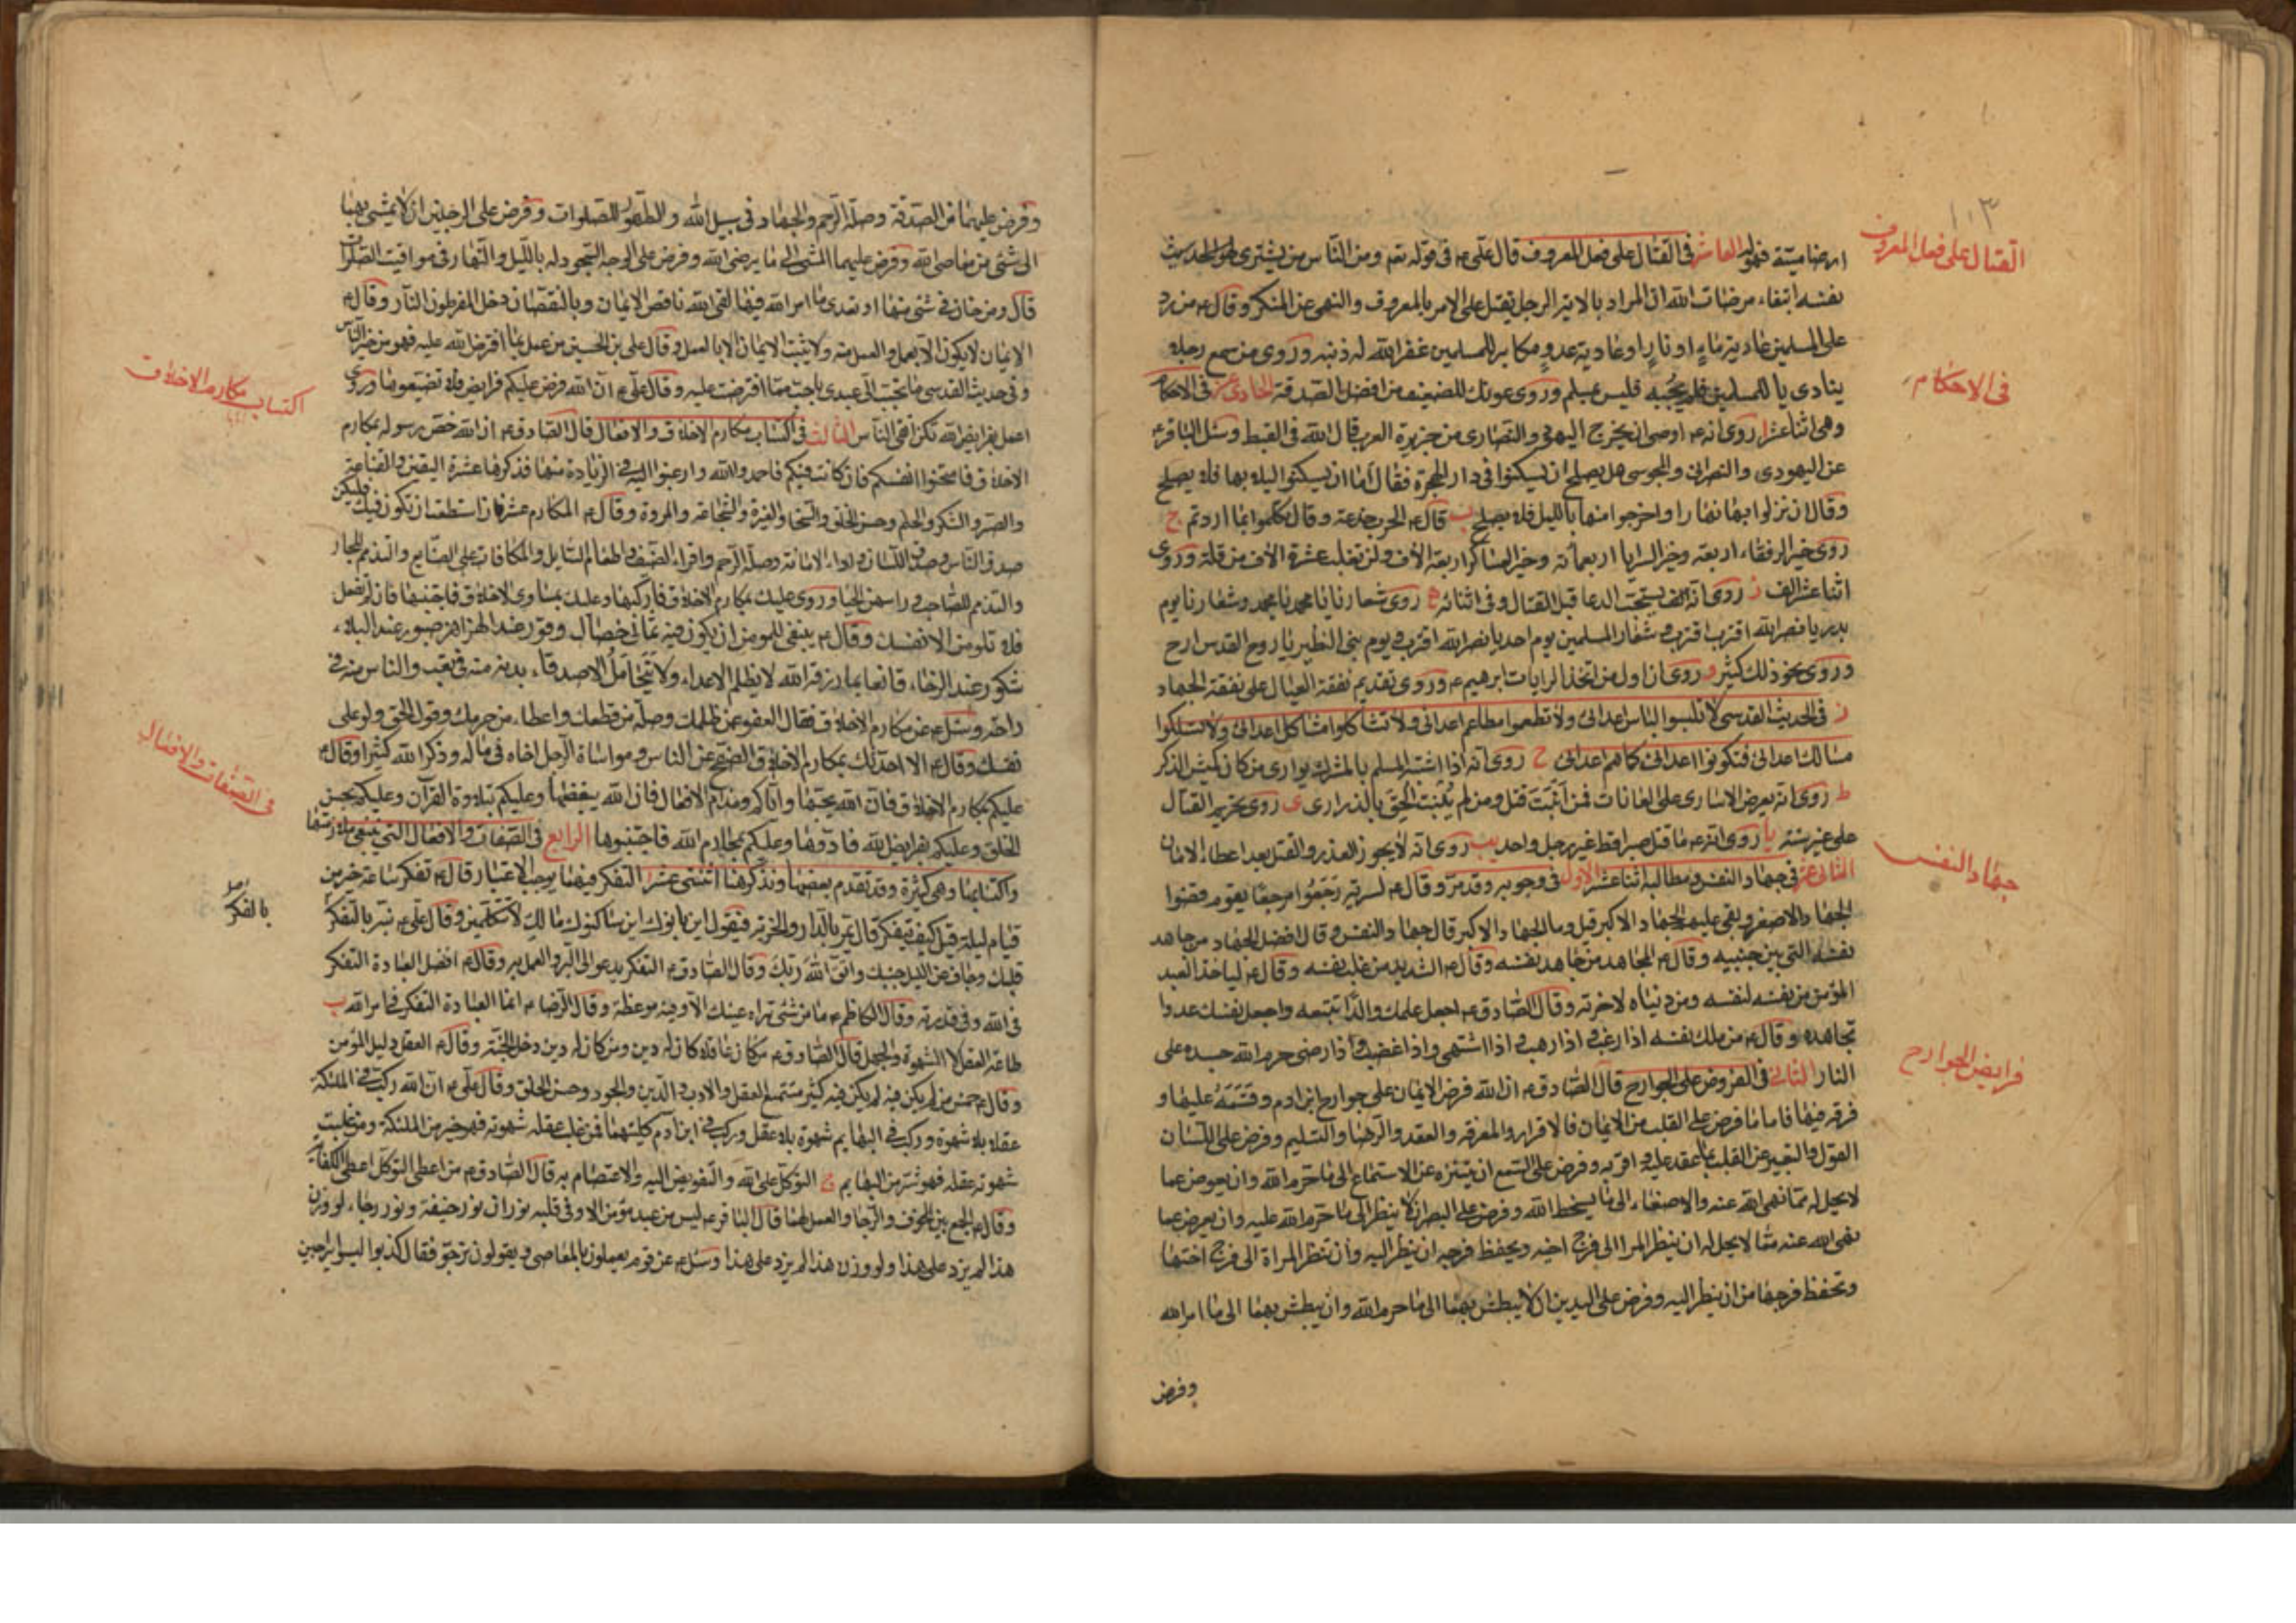 ١٠٣
القتال على فعل المعروف
العاشر في القتال على فعل المعروف قال علي ع في قوله تعم ومن الناس من يشترى
نفسه ابتغاء مرضات الله ان المراد بالاية الرجل يقتل على الامر بالمعروف والنهى عن المنكر وقال ع من رد
على المسلمين عادية ماء او نار او عادية عدو مكابر للمسلمين غفر الله له ذنبه وروى من سمع رجلا
في الاحكام
ينادى يا للمسلمين فلم يجبه فليس بمسلم وروى عونك للضعيف من افضل الصدقة الحادى عشر في الاحكام
وهى اثنا عشر ا روى انه ع اوصى ان يخرج اليهود والنصارى من جزيرة العرب قال الله في القبط وسئل الباقر ع
عن اليهودى والنصرانى والمجوسى هل يصلح ان يسكنوا في دار الهجرة فقال اما ان يسكنوا البلاد بها فلا يصلح
وقال ان نزلوا بها نهارا واخرجوا منها بالليل فلا يصلح ب قال ع الحرب خدعة وقال تكلموا بما اردتم ج
روى خير الرفقاء اربعة وخير السرايا اربعمائة وخير العساكر اربعة الاف ولن تغلب عشرة الاف من قلة وروى
اثنا عشر الف د روى انه يستحب الدعا قبل القتال وفي اثنائه ه روى شعارنا يا محمد يا محمد وشعارنا يوم
بدر يا نصر الله اقترب اقترب وشعار المسلمين يوم احد يا نصر الله اقترب ويوم بنى النظير يا روح القدس ارح
وروى نحو ذلك كثير و روى ان اول من اتخذ الرايات ابرهيم ع وروى تقديم نفقة العيال على نفقة الجهاد
ز في الحديث القدسى لا تلبسوا لباس اعدائى ولا تطعموا مطاعم اعدائى ولا تشاكلوا مشاكل اعدائى ولا تسلكوا
مسالك اعدائى فتكونوا اعدائى كما هم اعدائى ح روى انه اذا اشتبه المسلم بالمشرك يوارى من كان كميش الذكر
ط روى انه يعرض الاسارى على العانات فمن انبت قتل ومن لم ينبت الحق بالذرارى ى روى تحريم القتال
على غير سنة يا روى انه ع ما قتل صبرا قط غير رجل واحد يب روى انه لا يجوز الغدر والقتل بعد اعطاء الامان
جهاد النفس
الثانى عشر في جهاد النفس ومطالبه اثنا عشر الاول في وجوبه وقد مر وقال ع لسرية رجعوا مرحبا بقوم قضوا
الجهاد الاصغر وبقى عليهم الجهاد الاكبر قيل وما الجهاد الاكبر قال جهاد النفس وقال افضل الجهاد من جاهد
نفسه التى بين جنبيه وقال ع المجاهد من جاهد نفسه وقال ع الشديد من غلب نفسه وقال ع لياخذ العبد
المؤمن من نفسه لنفسه ومن دنياه لاخرته وقال الصادق ع اجعل علمك والدا تتبعه واجعل نفسك عدوا
تجاهده وقال ع من ملك نفسه اذا رغب واذا رهب واذا اشتهى واذا غضب واذا رضى حرم الله جسده على
فرايض الجوارح
النار الثانى في الفروض على الجوارح قال الصادق ع ان الله فرض الايمان على جوارح ابن ادم وقسمه عليها و
فرقه فيها فاما ما فرض على القلب من الايمان فالاقرار والمعرفة والعقد والرضا والتسليم وفرض على اللسان
القول والتعبير عن القلب بما عقد عليه واقر به وفرض على السمع ان يتنزه عن الاستماع الى ما حرم الله وان يعرض عما
لا يحل له مما نهى الله عنه والاصغاء الى ما يسخط الله وفرض على البصر ان لا ينظر الى ما حرم الله عليه وان يعرض عما
نهى الله عنه مما لا يحل له ان ينظر المرا الى فرج اخيه ويحفظ فرجه ان ينظر اليه وان تنظر المراة الى فرج اختها
وتحفظ فرجها من ان ينظر اليه وفرض على اليدين ان لا يبطش بهما الى ما حرم الله وان يبطش بهما الى ما امر الله
وفرض
وفرض عليهما من الصدقة وصلة الرحم والجهاد في سبيل الله والطهور للصلوات وفرض على الرجلين ان لا يمشى بهما
الى شئ من معاصى الله وفرض عليهما المشى الى ما يرضى الله وفرض على الوجه السجود له بالليل والنهار في مواقيت الصلوات
قال ومن خان في شئ منها او تعدى ما امر الله فيها لقى الله ناقص الايمان وبالنقصان دخل المفرطون النار وقال ع
الايمان لا يكون الا بعمل والعمل منه ولا يثبت الايمان الا بالعمل وقال على بن الحسين من عمل بما افترض الله عليه فهو من خير الناس
وفي حديث القدسى ما تحبب الى عبدى باحب مما افترضت عليه وقال علي ع ان الله فرض عليكم فرايض فلا تضيعوها وروى
اكتساب مكارم الاخلاق
اعمل بفرايض الله تكن اتقى الناس الثالث في اكتساب مكارم الاخلاق والافعال قال الصادق ع ان الله خص رسوله بمكارم
الاخلاق فامتحنوا انفسكم فان كانت فيكم فاحمدوا الله وارغبوا اليه في الزيادة منها فذكرها عشرة اليقين والقناعة
والصبر والشكر والحلم وحسن الخلق والسخا والغيرة والشجاعة والمروة وقال ع المكارم عشر فان استطعت ان تكون فيك فلتكن
صدق الناس وصدق اللسان واداء الامانة وصلة الرحم واقراء الضيف واطعام السايل والمكافات على الصنايع والتذمم للجار
والتذمم للصاحب وراسهن الحياء وروى عليك بمكارم الاخلاق فاركبها وعليك بمساوى الاخلاق فاجتنبها فان لم تفعل
فلا تلومن الا نفسك وقال ع ينبغى للمومن ان يكون فيه ثمانى خصال وقور عند الهزاهز صبور عند البلاء
شكور عند الرخاء قانعا بما رزقه الله لا يظلم الاعداء ولا يتحامل الاصدقاء بدنه منه في تعب والناس منه في
راحة وسئل ع عن مكارم الاخلاق فقال العفو عن ظلمك وصلة من قطعك واعطاء من حرمك وقول الحق ولو على
في الصفات والافعال
نفسك وقال ع الا احدثك بمكارم الاخلاق الصفح عن الناس ومواساة الرجل اخاه في ماله وذكر الله كثيرا وقال ع
عليكم بمكارم الاخلاق فان الله يحبها واياكم ومذام الافعال فان الله يبغضها وعليكم بتلاوة القرآن وعليكم بحسن
الخلق وعليكم بفرايض الله فادوها وعليكم بمحارم الله فاجتنبوها الرابع في الصفات والافعال التى ينبغى ملازمتها
واكتسابها وهى كثيرة وقد تقدم بعضها ونذكر هنا اثنتى عشر ا التفكر فيها يوجب الاعتبار قال ع تفكر ساعة خير من
بالفكر
قيام ليلة قيل كيف يتفكر قال يمر بالدار والخربة فيقول اين بانوك اين ساكنوك مالك لا تتكلمين وقال علي ع نبه بالتفكر
قلبك وجاف عن الليل جنبك واتق الله ربك وقال الصادق ع التفكر يدعو الى البر والعمل به وقال ع افضل العبادة التفكر
في الله وفي قدرته وقال الكاظم ع ما من شئ تراه عينك الا وفيه موعظة وقال الرضا ع انما العبادة التفكر في امر الله ب
طاعة العقل لا الشهوة والجهل قال الصادق ع من كان عاقلا كان له دين ومن كان له دين دخل الجنة وقال ع العقل دليل المؤمن
وقال ع خمس من لم يكن فيه لم يكن فيه كثير مستمتع العقل والادب والدين والجود وحسن الخلق وقال علي ع ان الله ركب في الملئكة
عقلا بلا شهوة وركب في البهايم شهوة بلا عقل وركب في ابن آدم كليهما فمن غلب عقله شهوته فهو خير من الملئكة ومن غلبت
شهوته عقله فهو شر من البهايم ج التوكل على الله والتفويض اليه والاعتصام به قال الصادق ع من اعطى التوكل اعطى الكفاية
وقال ع الجمع بين الخوف والرجا والعمل لهما قال الباقر ع ليس من عبد مؤمن الا وفي قلبه نوران نور خيفة ونور رجاء لو وزن
هذا لم يزد على هذا ولو وزن هذا لم يزد على هذا وسئل ع عن قوم يعملون بالمعاصى ويقولون نرجو فقال كذبوا ليسوا براجين